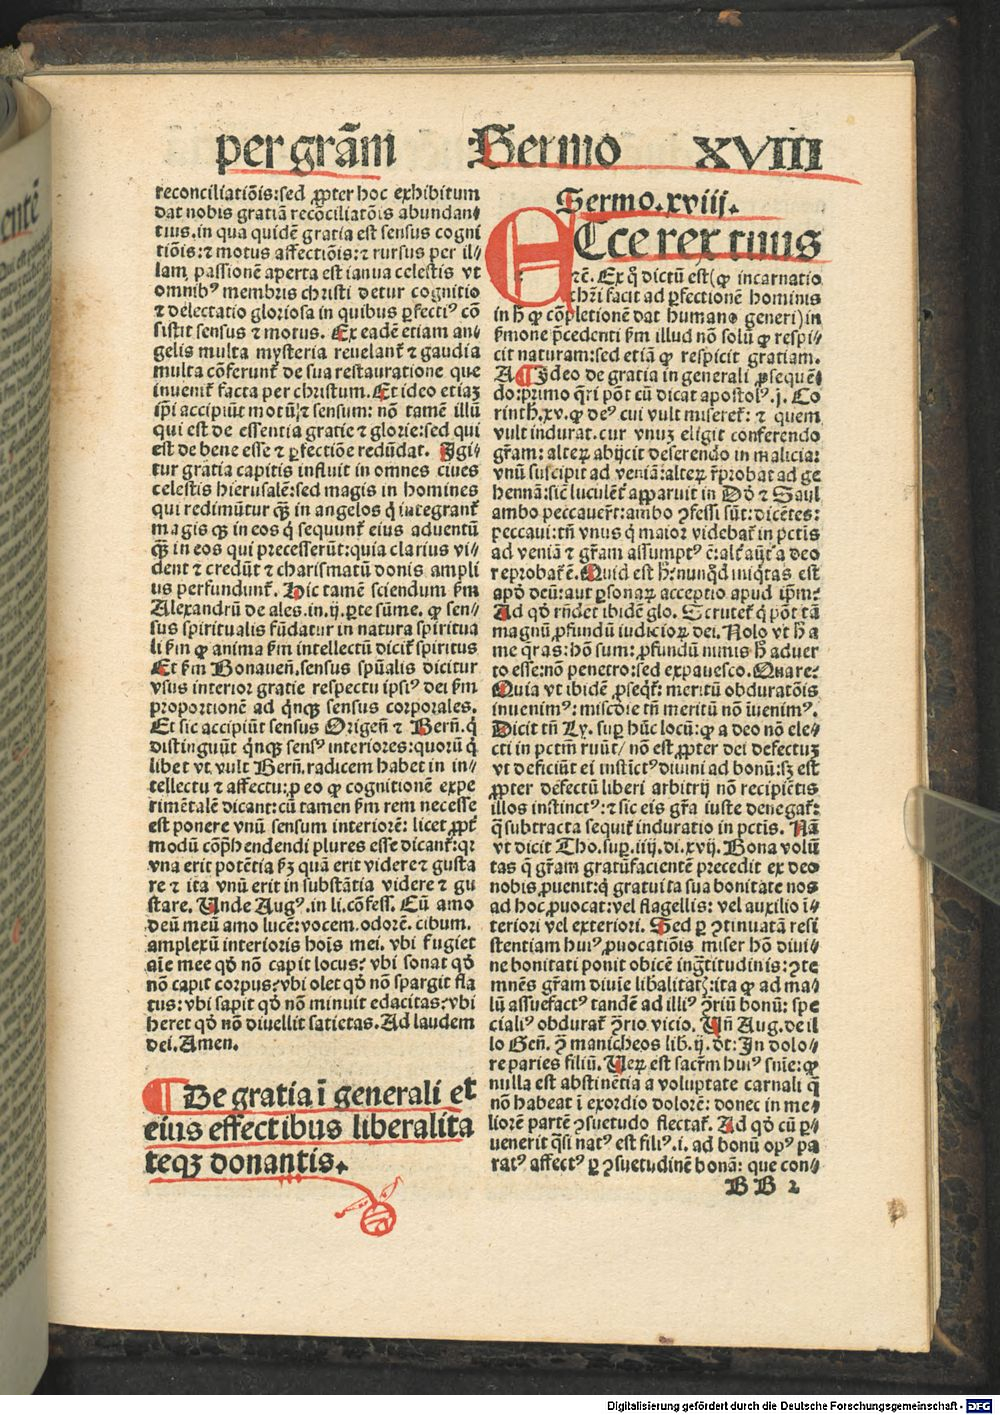 per grãm Sermo XVIII
reconciliatiõis: sed ꝓpter hoc exhibitum
dat nobis gratiã recõciliatõis abundan⸗
tius. in qua quidẽ gratia est sensus cogni
tiõis: ⁊ motus affectiõis: ⁊ rursus per il⸗
lam passionẽ aperta est ianua celestis vt
omnibꝰ membris christi detur cognitio
⁊ delectatio gloriosa in quibus ꝑfectiꝰ cõ
sistit sensus ⁊ motus. Ex eadẽ etiam an⸗
gelis multa mysteria reuelant᷑ ⁊ gaudia
multa cõferunt᷑ de sua restauratione que
inuenit᷑ facta per christum. Et ideo etiaꝫ
ip̃i accipiũt motũ ⁊ sensum: nõ tamẽ illũ
qui est de essentia gratie ⁊ glorie: sed qui
est de bene esse ⁊ ꝑfectiõe redũdat. Igi⸗
tur gratia capitis influit in omnes ciues
celestis hierusalẽ: sed magis in homines
qui redimũtur q̃ꝫ in angelos q̇ integrant᷑
magis qꝫ in eos q̇ sequunt᷑ eius aduentũ
q̃ꝫ in eos qui precesserũt: quia clarius vi⸗
dent ⁊ credũt ⁊ charismatũ donis ampli
us perfundunt᷑. Hic tamẽ sciendum ẜm
Alexandrũ de ales. in. ij. ꝑte sũme. ꝙ sen⸗
sus spiritualis fũdatur in natura spiritua
li ẜm ꝙ anima ẜm intellectũ dicit᷑ spiritus
Et ẜm Bonauen̄. sensus spũalis dicitur
vsus interior gratie respectu ipsiꝰ dei ẜm
proportionẽ ad q̇nqꝫ sensus corporales.
Et sic accipiũt sensus Origen̄ ⁊ Bern̄. q̇
distinguũt q̇nqꝫ sensꝰ interiores: quorũ q̇
libet vt vult Bern̄. radicem habet in in⸗
tellectu ⁊ affectu: ꝑ eo ꝙ cognitionẽ expe
rimẽtalẽ dicant: cũ tamen ẜm rem necesse
est ponere vnũ sensum interiorẽ: licet ꝓpt᷑
modũ cõp̃hendendi plures esse dicant᷑: qꝛ
vna erit potẽtia ẜꝫ quã erit videre ⁊ gusta
re ⁊ ita vnũ erit in substãtia videre ⁊ gu
stare. Unde Augꝰ. in li. cõfess. Cũ amo
deũ meũ amo lucẽ: vocem. odorẽ. cibum.
amplexũ interioris hoĩs mei. vbi fugiet
aĩe mee qđ nõ capit locus: vbi sonat qđ
nõ capit corpus: vbi olet qđ nõ spargit fla
tus: vbi sapit qđ nõ minuit edacitas: vbi
heret qđ nõ diuellit satietas. Ad laudem
dei. Amen.
¶ De gratia ĩ generali et
eius effectibus liberalita
teqꝫ donantis.
Sermo. xviij.
ECce rex tuus
rẽ. Ex q̊ dictũ est (ꝙ incarnatio
chr̃i facit ad ꝑfectionẽ hominis
in h̊ ꝙ cõpletionẽ dat humano generi) in
ẜmone p̃cedenti ẜm illud nõ solũ ꝙ respi⸗
cit naturam: sed etiã ꝙ respicit gratiam.
A ¶ Ideo de gratia in generali ꝓsequẽ⸗
do: primo q̃ri põt cũ dicat apostolꝰ. j. Co
rinth̄. xv. ꝙ deꝰ cui vult miseret᷑: ⁊ quem
vult indurat. cur vnuꝫ eligit conferendo
gr̃am: alteꝝ abijcit deserendo in malicia:
vnũ suscipit ad veniã: alteꝝ r̃probat ad ge
hennã: sic̃ luculẽt᷑ apparuit in Dđ ⁊ Saul
ambo peccauer̃t: ambo ꝯfessi sũt: dicẽtes:
peccaui: tñ vnus q̇ maior videbat᷑ in pctis
ad veniã ⁊ gr̃am assumptꝰ ẽ: alt᷑ aũt a deo
reprobat᷑ ẽ. Quid est h̊: nunq̇d iniq̇tas est
apđ deũ: aut ꝑsonaꝝ acceptio apud ip̃m:
Ad qđ rñdet ibidẽ glo. Scrutet᷑ q̇ põt tã
magnũ ꝓfundũ iudicioꝝ dei. Nolo vt h̊ a
me q̃ras: hõ sum: ꝓfundũ nimis h̊ aduer
to esse: nõ penetro: sed expauesco. Quare:
Quia vt ibidẽ ꝓseq̇t᷑: meritũ obduratõis
inuenimꝰ: mis̃cdie tñ meritũ nõ ĩuenimꝰ.
Dicit tñ Ly. suꝑ hũc locũ: ꝙ a deo nõ ele⸗
cti in pctm̃ ruũt/ nõ est ꝓpter dei defectuꝫ
vt deficiũt ei instĩctꝰ diuini ad bonũ: sꝫ est
ꝓpter defectũ liberi arbitrij nõ recipiẽtis
illos instinctꝰ: ⁊ sic eis gr̃a iuste denegat᷑:
q̃ subtracta sequit᷑ induratio in pctis. Nã
vt dicit Tho. suꝑ. iiij. di. xvij. Bona volũ
tas q̃ gr̃am gratũfacientẽ precedit ex deo
nobis ꝓuenit: q̇ gratuita sua bonitate nos
ad hoc ꝓuocat: vel flagellis: vel auxilio ĩ⸗
teriori vel exteriori. Sed ꝑ ꝯtinuatã resi
stentiam huiꝰ ꝓuocatiõis miser hõ diui⸗
ne bonitati ponit obicẽ ing̃titudinis: ꝯte
mnẽs gr̃am diuĩe libalitatꝭ: ita ꝙ ad ma⸗
lũ assuefactꝰ tandẽ ad illiꝰ ꝯriũ bonũ: spe
cialiꝰ obdurat᷑ ꝯrio vicio. Uñ Aug. de il
lo Gen̄. ꝯ̃ manicheos lib. ij. dt̃: In dolo⸗
re paries filiũ. Ueꝝ est sacr̃m huiꝰ snĩe: ꝙ
nulla est abstinẽtia a voluptate carnali q̃
nõ habeat ĩ exordio dolorẽ: donec in me⸗
liorẽ partẽ ꝯsuetudo flectat᷑. Ad qđ cũ ꝑ⸗
uenerit q̃si natꝰ est filiꝰ. i. ad bonũ opꝰ pa
ratꝰ affectꝰ ꝑ ꝯsuetudinẽ bonã: que con⸗
BB 2
Digitalisierung gefördert durch die Deutsche Forschungsgemeinschaft - DFG